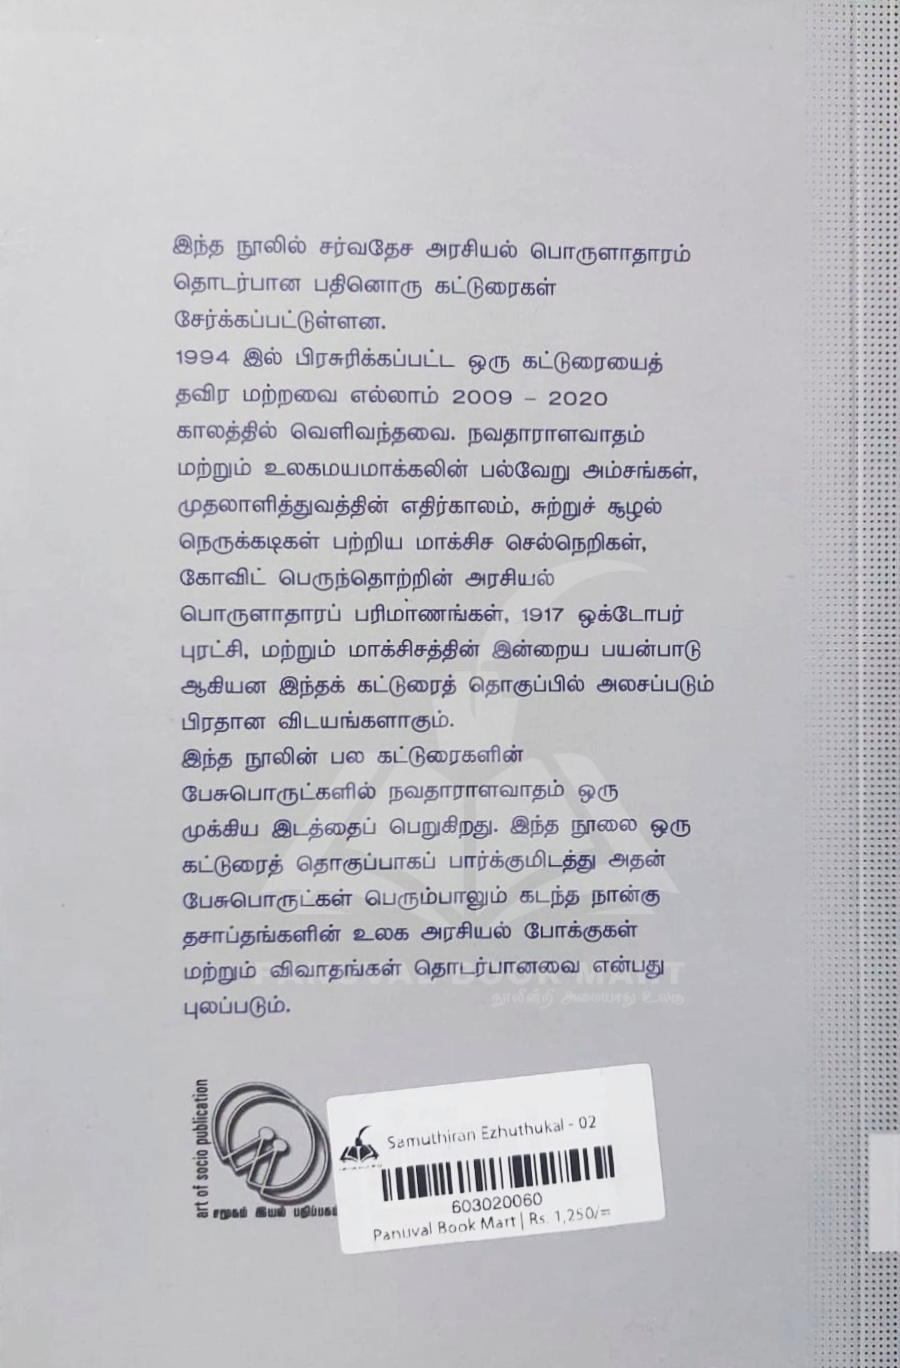 இந்த நூலில் சர்வதேச அரசியல் பொருளாதாரம்
தொடர்பான பதினொரு கட்டுரைகள்
சேர்க்கப்பட்டுள்ளன.
1994 இல் பிரசுரிக்கப்பட்ட ஒரு கட்டுரையைத்
தவிர மற்றவை எல்லாம் 2009 – 2020
காலத்தில் வெளிவந்தவை. நவதாராளவாதம்
மற்றும் உலகமயமாக்கலின் பல்வேறு அம்சங்கள்,
முதலாளித்துவத்தின் எதிர்காலம், சுற்றுச் சூழல்
நெருக்கடிகள் பற்றிய மாக்சிச செல்நெறிகள்,
கோவிட் பெருந்தொற்றின் அரசியல்
பொருளாதாரப் பரிமாணங்கள், 1917 ஒக்டோபர்
புரட்சி, மற்றும் மாக்சிசத்தின் இன்றைய பயன்பாடு
ஆகியன இந்தக் கட்டுரைத் தொகுப்பில் அலசப்படும்
பிரதான விடயங்களாகும்.
இந்த நூலின் பல கட்டுரைகளின்
பேசுபொருட்களில் நவதாராளவாதம் ஒரு
முக்கிய இடத்தைப் பெறுகிறது. இந்த நூலை ஒரு
கட்டுரைத் தொகுப்பாகப் பார்க்குமிடத்து அதன்
பேசுபொருட்கள் பெரும்பாலும் கடந்த நான்கு
தசாப்தங்களின் உலக அரசியல் போக்குகள்
மற்றும் விவாதங்கள் தொடர்பானவை என்பது
புலப்படும்.
PANUVAL BOOK MART
நூலின்றி அமையாது உலகு
art of socio publication
சமூகம் இயல் பதிப்பகம்
Samuthiran Ezhuthukal - 02
603020060
Panuval Book Mart | Rs. 1,250/=